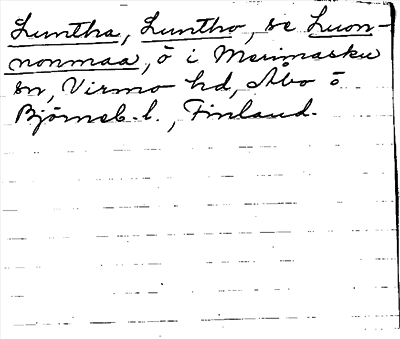 Luntha, Luntho, se Luon-
nonmaa, ö i Merimasku
sn, Virmo hd, Åbo o
Björneb. l., Finland.